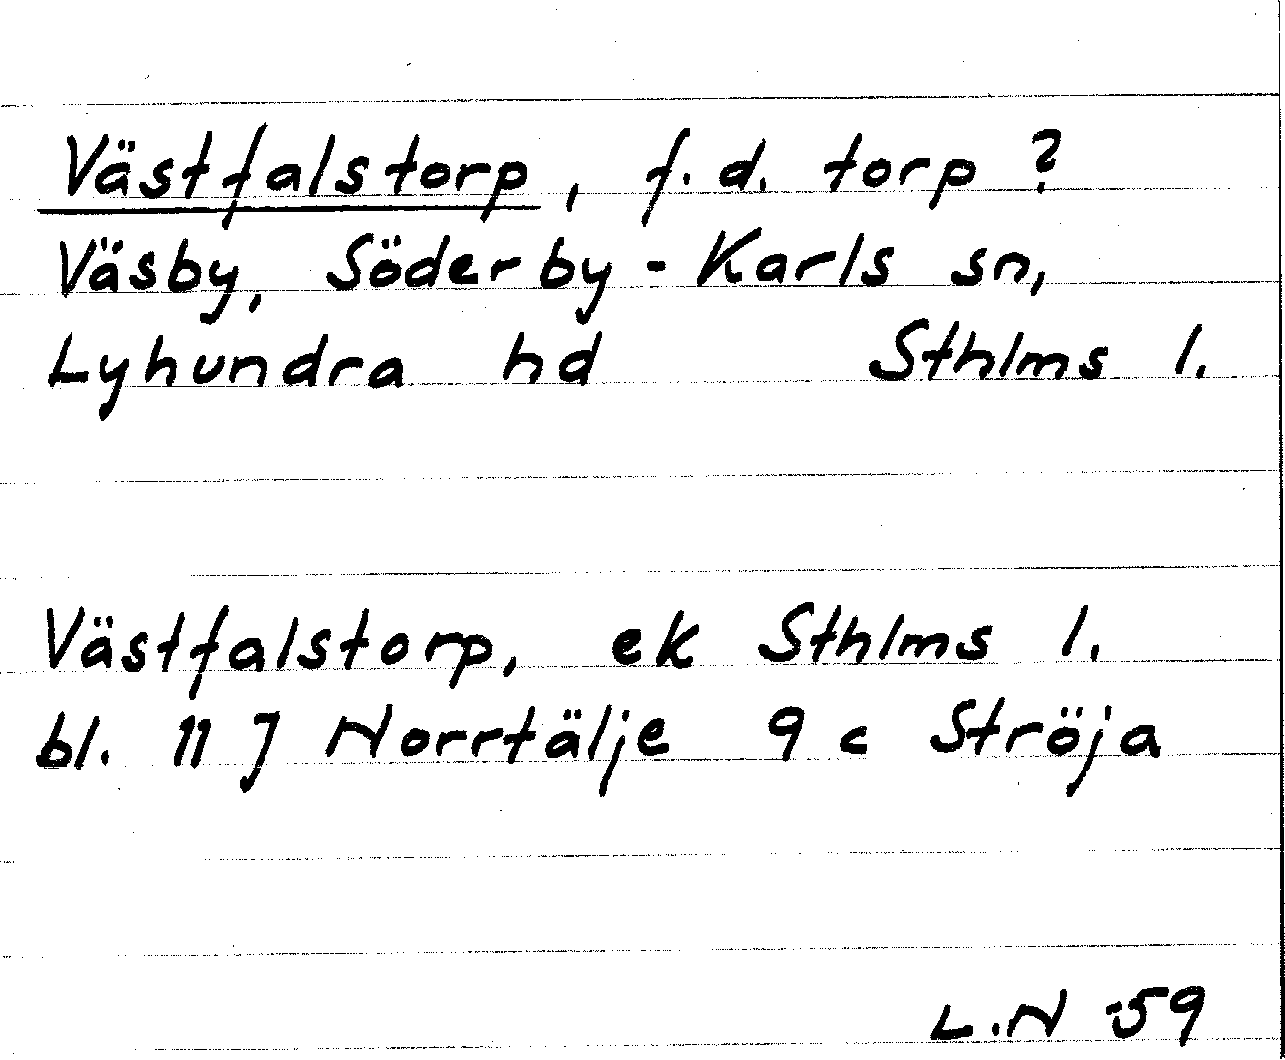 Västfalstorp, f.d. torp ?
Väsby, Söderby-Karls sn,
Lyhundra hd Sthlms l.
Västfalstorp, ek Sthlms l.
bl. 11 J Norrtälje 9 c Ströja
L.N -59